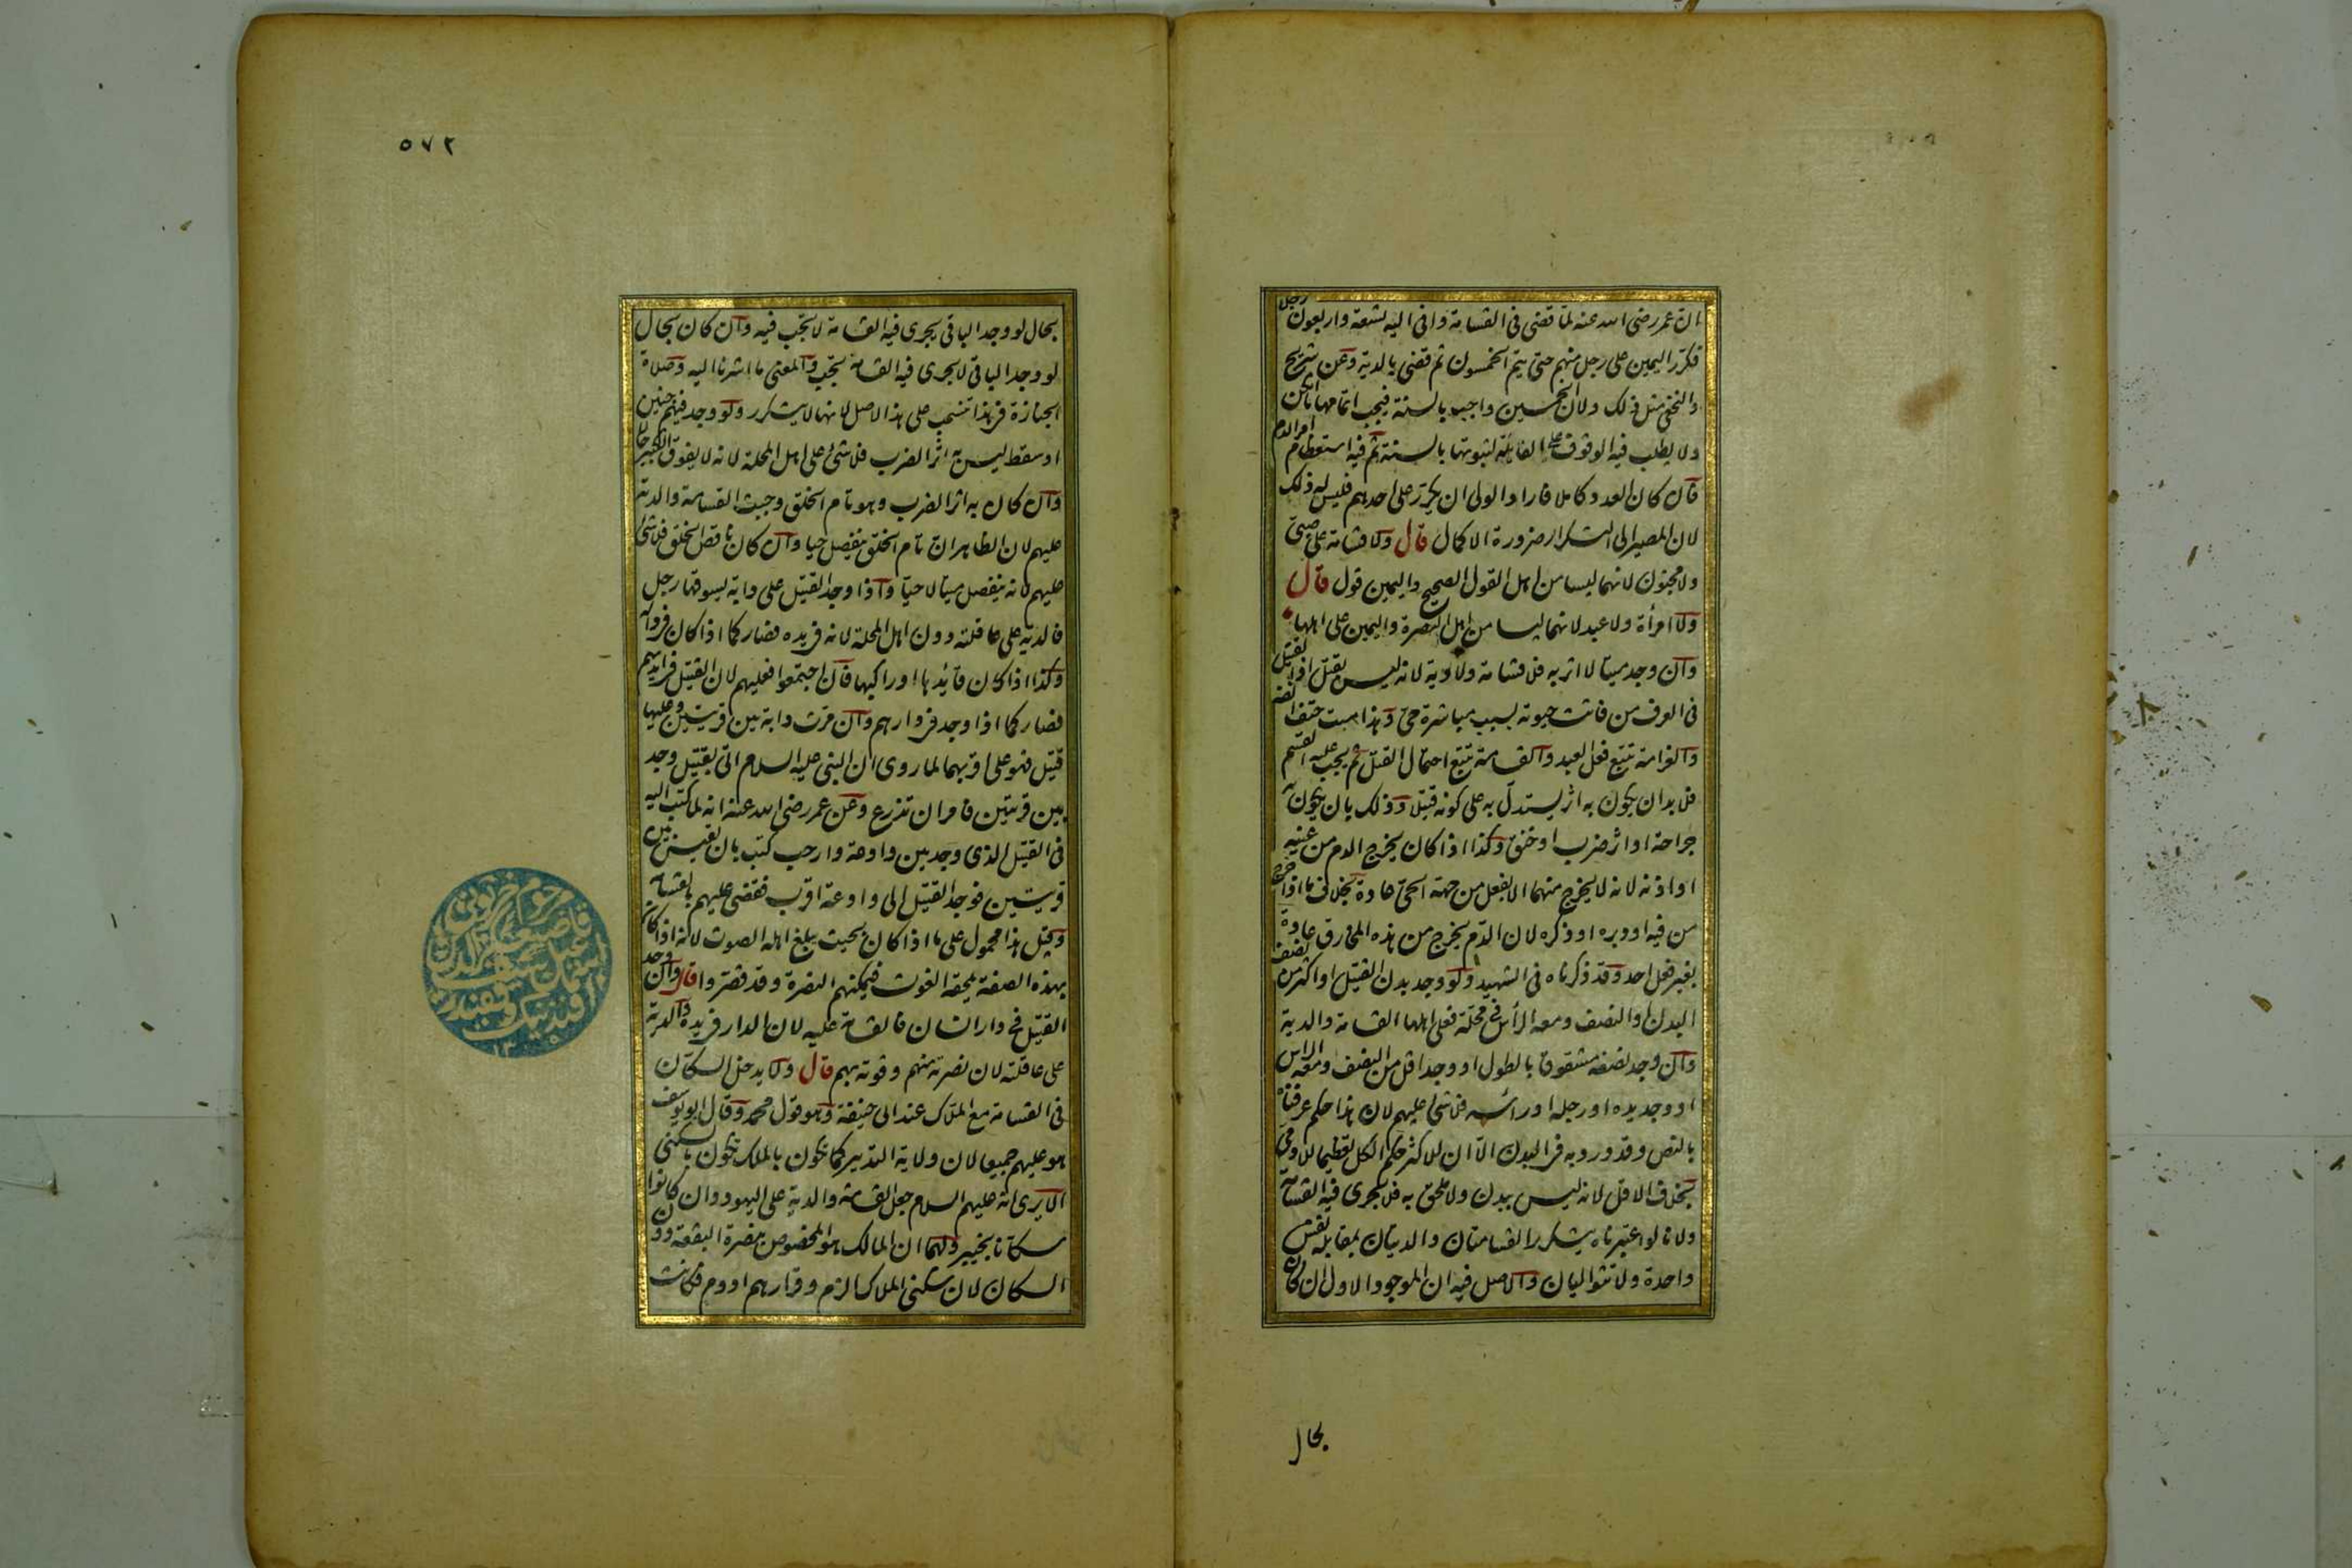 ان عمر رضى الله عنه لما قضى فى القسامة وافى اليه تسعة واربعون رجل
فكرر اليمين على رجل منهم حتى يتم الخمسون ثم قضى بالدية وعن شريح
والنخعى مثل ذلك ولان الخمسين واجب بالسنة فيجب اتمامها ما امكن
ولا يطلب فيه الوقوف على الفائدة لثبوتها بالسنة ثم فيه استعظام امر الدم
فان كان العدد كاملا فاراد الولى ان يكرر على احدهم فليس له ذلك
لان المصير الى التكرار ضرورة الاكمال قال ولا قسامة على صبى
ولا مجنون لانهما ليسا من اهل القول الصحيح واليمين قول قال
ولا امرأة ولا عبد لانهما ليسا من اهل النصرة واليمين على اهلها
وان وجد ميتا لا اثر به فلا قسامة ولا دية لانه ليس بقتيل اذ القتيل
فى العرف من فاتت حيوته بسبب مباشرة حى وهذا ميت حتف انفه
والغرامة تتبع فعل العبد والقسامة تتبع احتمال القتل ثم يجب عليه القسم
فلا بد ان يكون به اثر يستدل به على كونه قتيلا وذلك بان يكون به
جراحة او اثر ضرب او خنق وكذا اذا كان يخرج الدم من عينيه
او اذنه لانه لا يخرج منهما الا بفعل من جهة الحى عادة بخلاف ما اذا خرج
من فيه او دبره او ذكره لان الدم يخرج من هذه المخارق عادة
بغير فعل احد وقد ذكرناه فى الشهيد ولو وجد بدن القتيل او اكثر من نصف
البدن او النصف ومعه الرأس فى محلة فعلى اهلها القسامة والدية
وان وجد نصفه مشقوقا بالطول او وجد اقل من النصف ومعه الراس
او وجد يده او رجله او رأسه فلا شئ عليهم لان هذا حكم عرفناه
بالنص وقد ورد به فى البدن الا ان للاكثر حكم الكل تعظيما للادمى
بخلاف الاقل لانه ليس ببدن ولا ملحق به فلا يجرى فيه القسامة
ولانا لو اعتبرناه يتكرر القسامتان والديتان بمقابلة نفس
واحدة ولا تتواليان والاصل فيه ان الموجود الاول ان كان
بحال
٥٧٢
بحال لو وجد الباقى يجرى فيه القسامة لا تجب فيه وان كان بحال
لو وجد الباقى لا يجرى فيه القسامة تجب والمعنى ما اشرنا اليه وصلاة
الجنازة فى هذا تنسحب على هذا الاصل لانها لا يتكرر ولو وجد فيهم جنين
او سقط ليس به اثر الضرب فلا شئ على اهل المحلة لانه لا يفوق الكبير حالا
وان كان به اثر الضرب وهو تام الخلق وجبت القسامة والدية
عليهم لان الظاهر ان تام الخلق ينفصل حيا وان كان ناقص الخلق فلا شئ
عليهم لانه ينفصل ميتا لا حيا واذا وجد القتيل على دابة يسوقها رجل
فالدية على عاقلته دون اهل المحلة لانه فى يده فصار كما اذا كان فى داره
وكذا اذا كان قائدها او راكبها فان اجتمعوا فعليهم لان القتيل فى ايديهم
فصار كما اذا وجد فى دارهم وان مرت دابة بين قريتين وعليها
قتيل فهو على اقربهما لما روى ان النبى عليه السلام اتى بقتيل وجد
بين قريتين فامر ان تذرع وعن عمر رضى الله عنه انه لما كتب اليه
فى القتيل الذى وجد بين وادعة وارحب كتب بان يقيس بين
قريتين فوجد القتيل الى وادعة اقرب فقضى عليهم بالقسامة
وقيل هذا محمول على ما اذا كان بحيث يبلغ اهله الصوت لانه اذا كان
بهذه الصفة يلحقه الغوث فيمكنهم النصرة وقد قصروا قال وان وجد
القتيل فى دار انسان فالقسامة عليه لان الدار فى يده والدية
على عاقلته لان نصرته منهم وقوته بهم قال ولا يدخل السكان
فى القسامة مع الملاك عند ابى حنيفة وهو قول محمد وقال ابو يوسف
هو عليهم جميعا لان ولاية التدبير كما تكون بالملك تكون بالسكنى
الا يرى انه عليهم السلام جعل القسامة والدية على اليهود وان كانوا
سكانا بخيبر ولهما ان المالك هو المخصوص بنصرة البقعة دون
السكان لان سكنى الملاك الزم وقرارهم ادوم فكانت